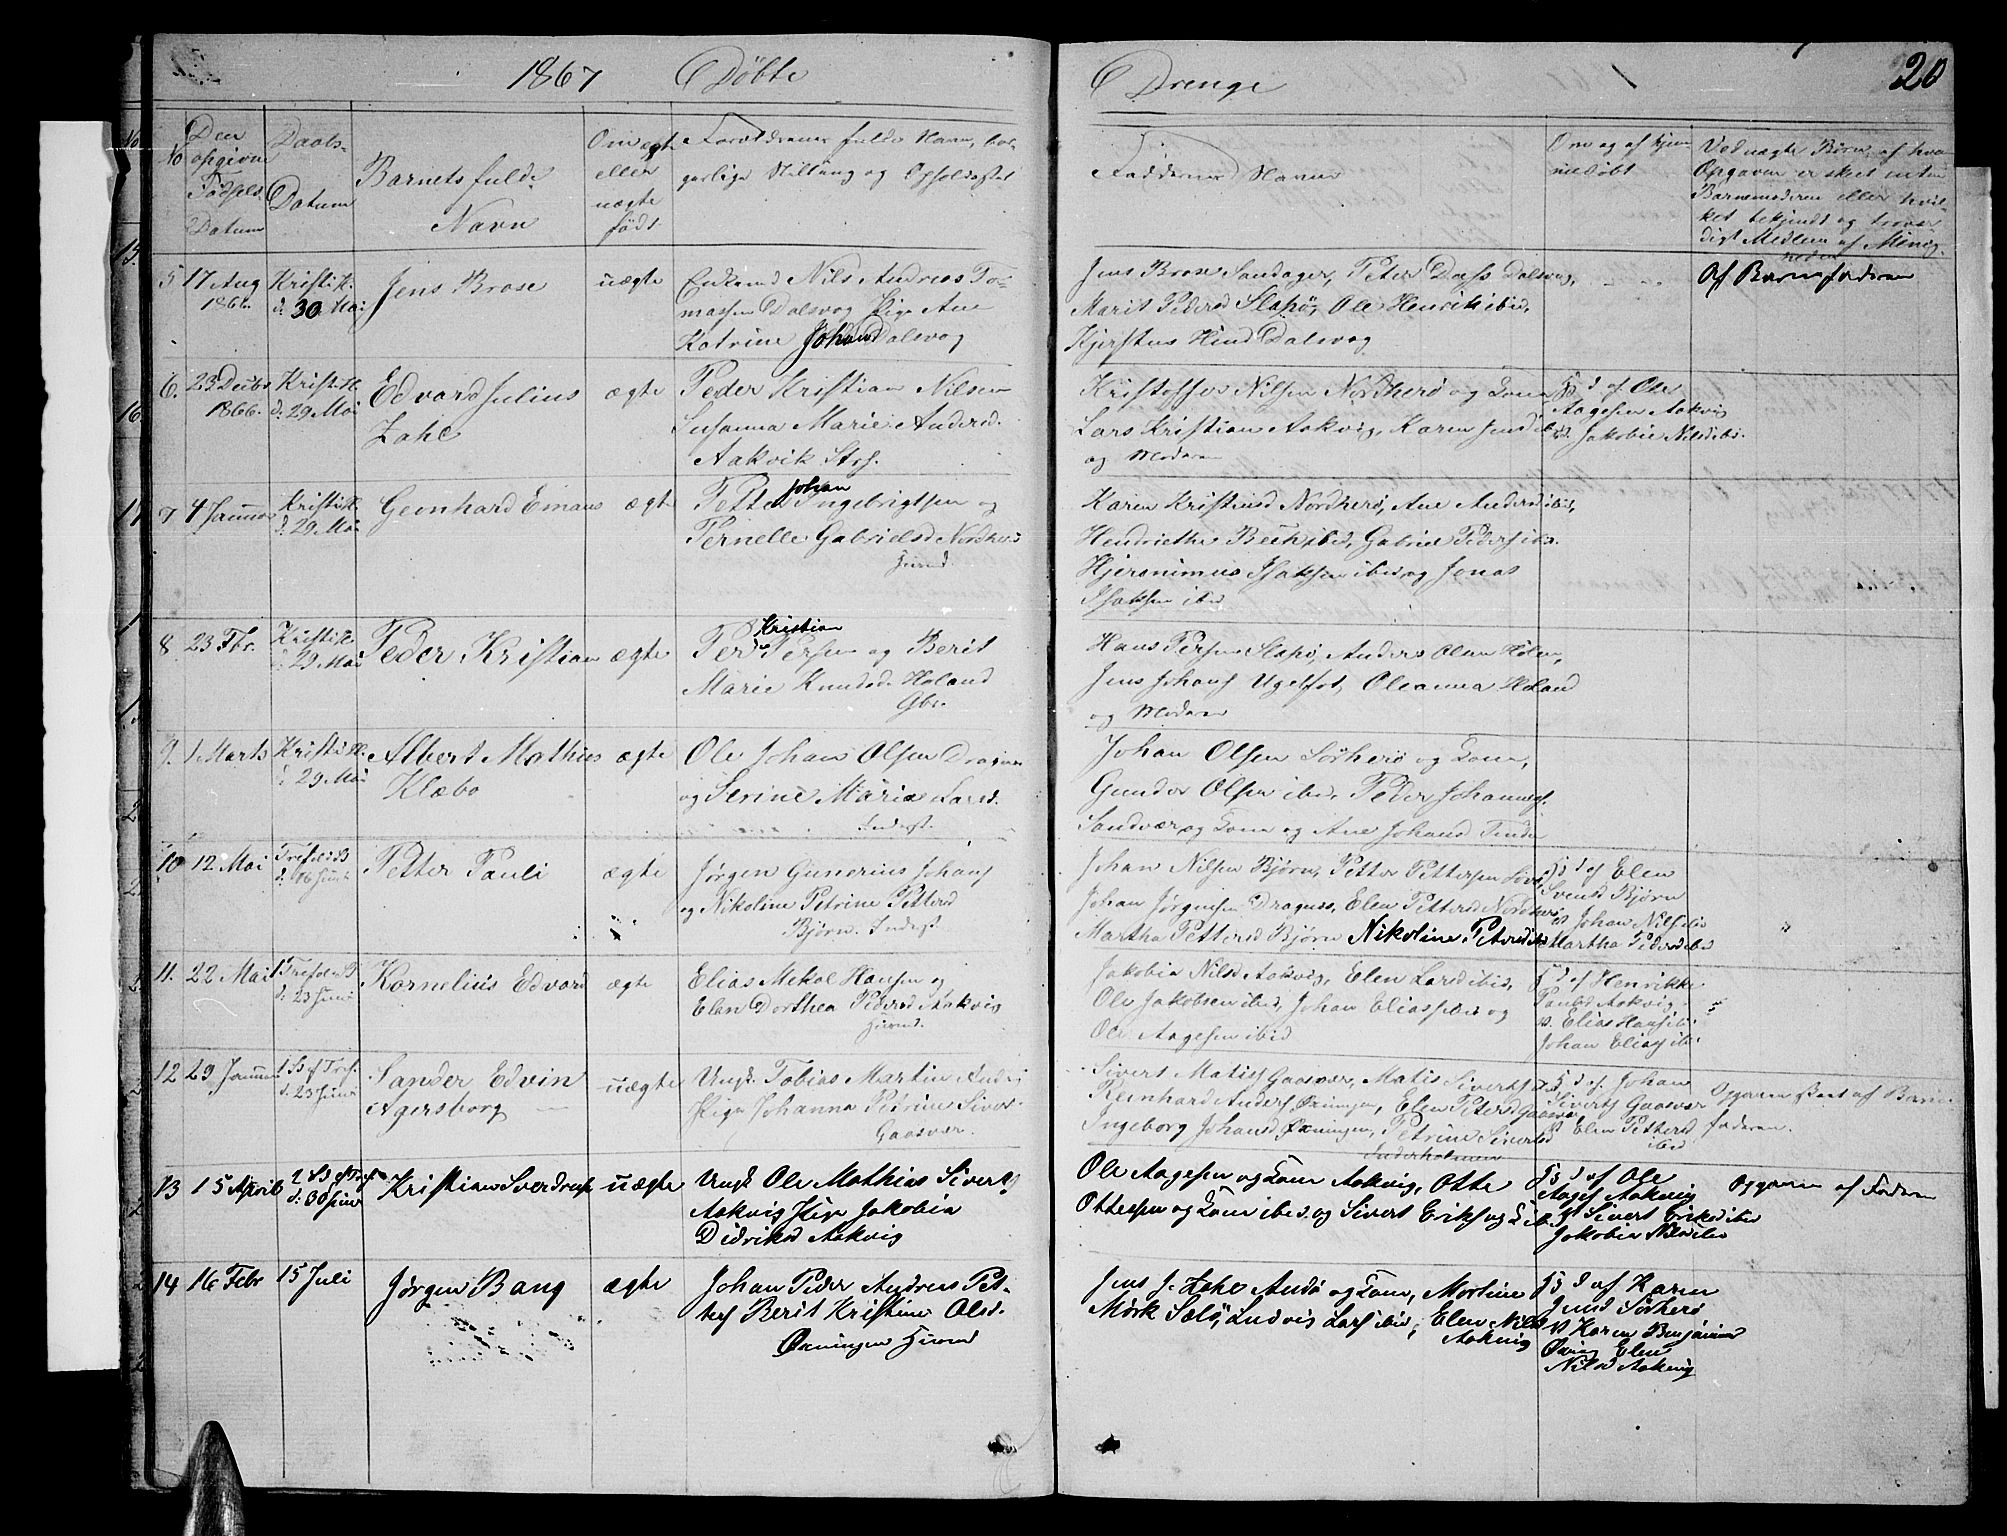 1867 Døbte
Drenge
20
No
Den opgivne Fødsels Datum
Daabs-Datum
Barnets fulde Navn
Om ægte eller uægte født
Forældrenes fulde Navn, borgerlige Stilling og Opholdssted
Faddernes Navne
Om og af hjemmedøbt
Ved uægte Børn, af hvem
Opgaven er skeet enten
Barnemoderen eller hvil-
ket bekjendt og trovær-
digt Medlem af Menig-
heden
5 17 Aug 1866. Kristi H. d. 30 Mai
Jens Brose
uægte
Enkemd Nils Andreas To-
massen Dalsvog Pige Ane
Katrine Johansd Dalsvog
Jens Brose Sandager, Peter Dass Dalsvog,
Marit Pedersd Slapø, Ole Henrik ibid,
Kjerstus Hind Dalsvog
Af Barnefaderen
6. 23 Decbr 1866. Kristi H. d. 29 Mai
Edvard Julius
Zahl
ægte
Peder Kristian Nilsen
Susanna Marie Andersd.
Aakvik Strf.
Kristoffer Nilsen Nordherø og Kone
Lars Kristian Aakvig, Karen Jensd ibid
og Moderen
Hj d af Ole
Aagesen Aakvig
v. Jakobie Nilsd ibi.
7 4 Januar Kristi H. d. 29 Mai
Geonhard Emaus
ægte
Petter Johan Ingebrigtsen og
Pernelle Gabrielsd Nordherø
Huusmd.
Karen Kristensd Nordherø, Ane Andersd ibid,
Hendriethe Beck ibid, Gabriel Pedersen ibi.
Hjeronimus Isaksen ibid og Jonas
Isaksen ibid
8 23 Fbr. Kristi H. d. 29 Mai
Peder Kristian
ægte
Peder Kristian Persen og Berit
Marie Knudsd. Holand
Gbr.
Hans Persen Slapø, Anders Olsen Holen,
Jens Johans Ugelfot, Oleanna Holand
og Moderen
9. 1 Marts Kristi H. d. 29 Mai
Albert Mathias
Klæbo
ægte
Ole Johan Olsen Dragnes
og Serine Maria Larsd.
Inderst.
Johan Olsen Sørherø og Kone,
Gunder Olsen ibid, Peder Johannes.
Sandvær og Kone og Ane Johansd Tinden
10 12 Mai 16 Juni
Petter Pauli
ægte
Jørgen Gunerius Johans
og Nikoline Petrine Pettersd
Bjørn. Inderst.
Johan Nilsen Bjørn, Petter Pettersen
Johan Jørgensen Dragnes, Elen Pettersd Nordherø
Martha Pettersd Bjørn Nikoline Petersd ibid
Hj d af Elen
Svensd Bjørn
v Johan Nils ibid
Martha Pedersd ibid
11. 22 Mai d. 23 Juni
Kornelius Edvard
ægte
Elias Mekal Hansen og
Elen Dorthea Pedersd Aakvig
Huusmd.
Jakobia Nilsd Aakvig, Elen Larsd ibid,
Ole Jakobsen ibid, Johan Eliassen og
Ole Aagesen ibid
Hj d af Henrikke
Paulsd Aakvig
v. Elias Hans ibi
Johan Elias ibi
12 29 Januar 1 S. ef Tref. d. 23 Juni
Sander Edvin
Agersborg
uægte
Ungk. Tobias Martin Anders
Pige Johanna Petrine Sivers
Gaasvær.
Sivert Matis Gaasvær, Matis Siverts ibid
Reinhard Anders Øxningen, Elen Petersd Gaasvær
Ingeborg Johansd Øxningen, Petrine Sivertsd
Inderholmen
Hj d af Johan
Siverts Gaasvær
v Elen Pettersd
ibid
Opgaven skeet af Barne
faderen.
13 15 April 2 S. ef Tref. d. 30 Juni
Kristian Sverdrup
uægte
Ungk Ole Mathias Siverts
Aakvig Pige Jakobia
Didriksd Aakvig
Ole Aagesen og Kone Aakvig, Otte
Ottessen og Kone ibid. og Sivert Eriks og K ibid
Hj d af Ole
Aages Aakvig
v Sivert Eriks ibid
Jakobia Nilsd ibid
Opgaven af Faderen
14 16 Febr 15 Juli
Jørgen Bang
ægte
Johan Peder Andreas Pet-
ters Berit Kristine Olsd.
Øxningen Huusmd
Jens J. Zahl Andø og Kone, Martine
Mørk Sølø, Ludvig Lars ibid, Elen Nilsd
Aakvig
Hj d af Karen
Jensd Sørherø
v Karen Benjamin
Øxning Elen
Nilsd Aakvig